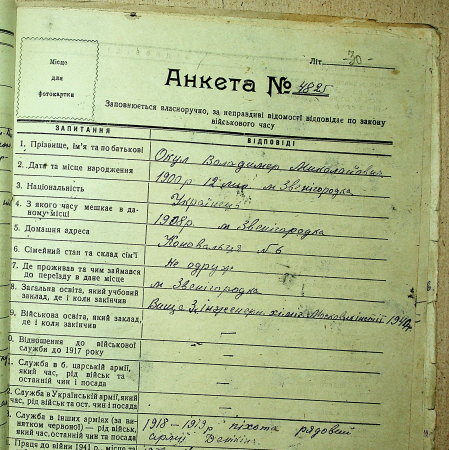 Місце
для
фотокартки
Літ. -30-
Анкета № 4825
Заповнюється власноручно, за неправдиві відомості відповідає по закону
військового часу
ЗАПИТАННЯ
ВІДПОВІДІ
1. Прізвище, ім'я та по батькові
Окул Володимер Миколайович
2. Дата та місце народження
1900 р 12 м. Звенігородка
3. Національність
Українець
4. З якого часу мешкає в да-
ному місці
1908 р. м Звенігородка
5. Домашня адреса
Коновальця №6
6. Сімейний стан та склад сім'ї
не одруж
7. Де проживав та чим займався
до переїзду в дане місце
м. Звенігородка
8. Загальна освіта, який учбовий
заклад, де і коли закінчив
Вища
9. Військова освіта, який заклад,
де і коли закінчив
—
0. Відношення до військової
служби до 1917 року
—
1. Служба в б. царській армії,
який час, рід військ та
останній чин і посада
—
2. Служба в Українській армії, який
час, рід військ та ост. чин і посад.
—
3. Служба в інших арміях (за ви-
нятком червоної) — рід військ,
який час, останній чин та посада
1918 – 1919 р піхота рядовий
армії Денікіна
Праця до війни 1941 р., місце та